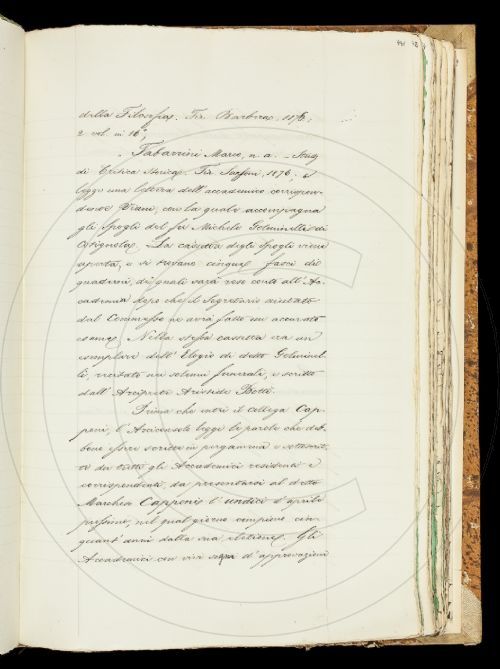 della Filosofia. Fir. Barbèra, 1876;
2 vol. in 16°;
Tabarrini Marco, n. a. - Studj
di Critica Storica. Fir. Sansoni, 1876; e
legge una lettera dell'accademico corrispon-
dente Viani, con la quale accompagna
gli Spogli del fu Michele
La cassetta degli Spogli viene
aperta, e si trovano cinque fasci di
quaderni, de' quali sarà reso conto all'Ac-
cademia dopo che il Segretario aiutato
dal Commesso ne avrà fatto un accurato
esame. Nella stessa cassetta era un
esemplare dell'Elogio di detto
recitato nei solenni funerali, e scritto
dall'Arciprete Aristide Botti.
Prima che entri il collega Cap-
poni, l'Arciconsolo legge le parole che deb-
bono essere scritte in pergamena e sottoscrit-
te da tutti gli Accademici residenti e
corrispondenti, da presentarsi al detto
Marchese Capponi l'undici d'aprile
prossimo, nel qual giorno compiono cin-
quant'anni dalla sua elezione. Gli
Accademici con vivi segni d'approvazione